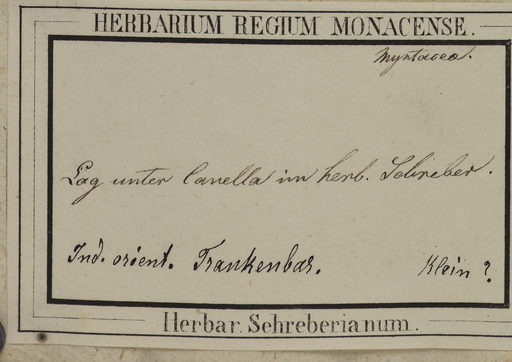 HERBARIUM REGIUM MONACENSE.
Myrtacea.
Lag unter Canella im herb. Schreber.
Ind. orient. Trankenbar. Klein?
Herbar. Schreberianum.